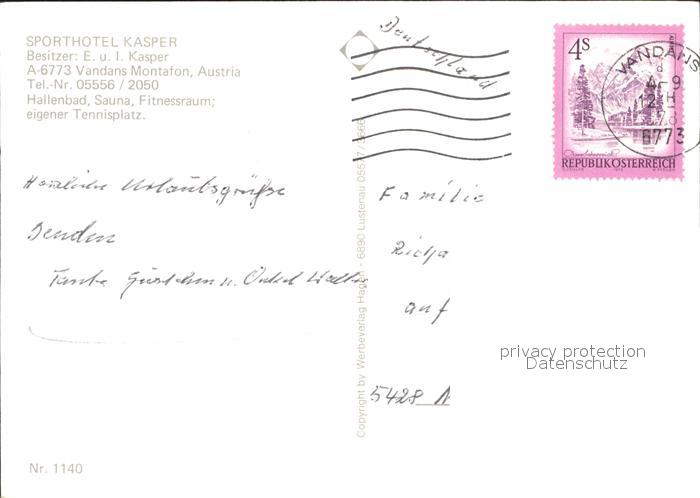 SPORTHOTEL KASPER
Besitzer: E. u. I. Kasper
A-6773 Vandans Montafon, Austria
Tel.-Nr. 05556 / 2050
Hallenbad, Sauna, Fitnessraum;
eigener Tennisplatz.
Herzliche Urlaubsgrüße
Senden
Tante u. Onkel
Nr. 1140
Copyright by Werbeverlag - 6890 Lustenau
Deutschland
4S
REPUBLIK ÖSTERREICH
VANDANS
6773
Familie
auf
5428 N
privacy protection
Datenschutz